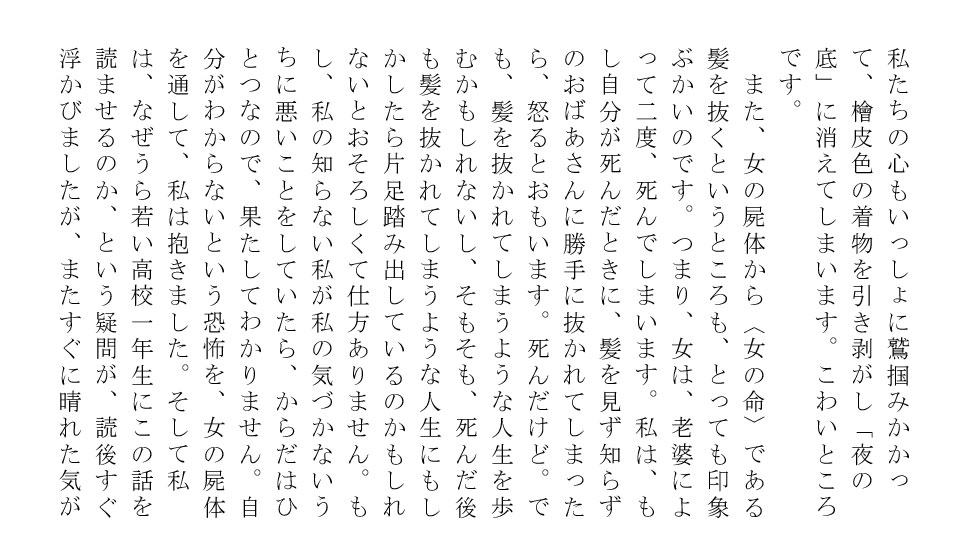 私たちの心もいっしょに鷲掴みかかっ
て、檜皮色の着物を引き剥がし「夜の
底」に消えてしまいます。こわいところ
です。
また、女の屍体から〈女の命〉である
髪を抜くというところも、とっても印象
ぶかいのです。つまり、女は、老婆によ
って二度、死んでしまいます。私は、も
し自分が死んだときに、髪を見ず知らず
のおばあさんに勝手に抜かれてしまった
ら、怒るとおもいます。死んだけど。で
も、髪を抜かれてしまうような人生を歩
むかもしれないし、そもそも、死んだ後
も髪を抜かれてしまうような人生にもし
かしたら片足踏み出しているのかもしれ
ないとおそろしくて仕方ありません。も
し、私の知らない私が私の気づかないう
ちに悪いことをしていたら、からだはひ
とつなので、果たしてわかりません。自
分がわからないという恐怖を、女の屍体
を通して、私は抱きました。そして私
は、なぜうら若い高校一年生にこの話を
読ませるのか、という疑問が、読後すぐ
浮かびましたが、またすぐに晴れた気が